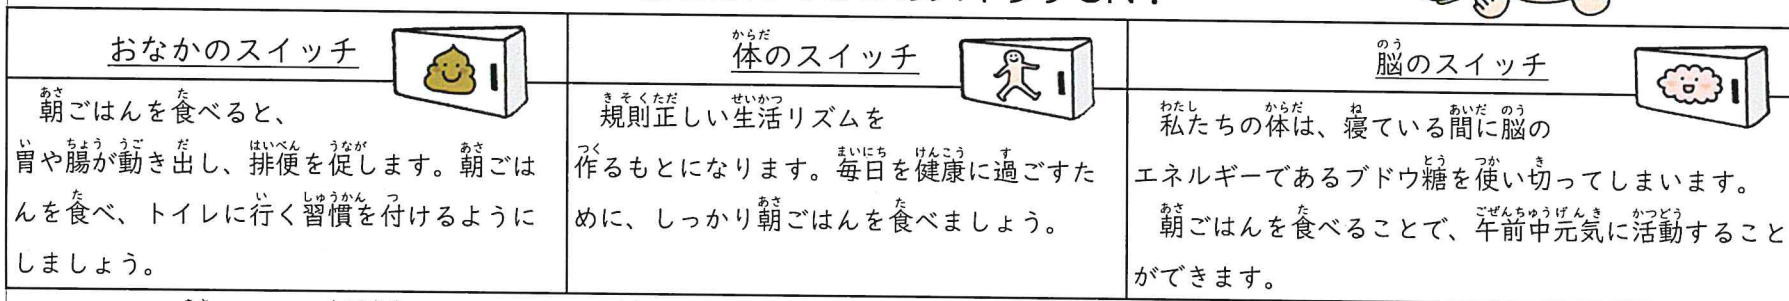 おなかのスイッチ
朝ごはんを食べると、
胃や腸が動き出し、排便を促します。朝ごは
んを食べ、トイレに行く習慣を付けるように
しましょう。
体のスイッチ
規則正しい生活リズムを
作るもとになります。毎日を健康に過ごすた
めに、しっかり朝ごはんを食べましょう。
脳のスイッチ
私たちの体は、寝ている間に脳の
エネルギーであるブドウ糖を使い切ってしまいます。
朝ごはんを食べることで、午前中元気に活動すること
ができます。